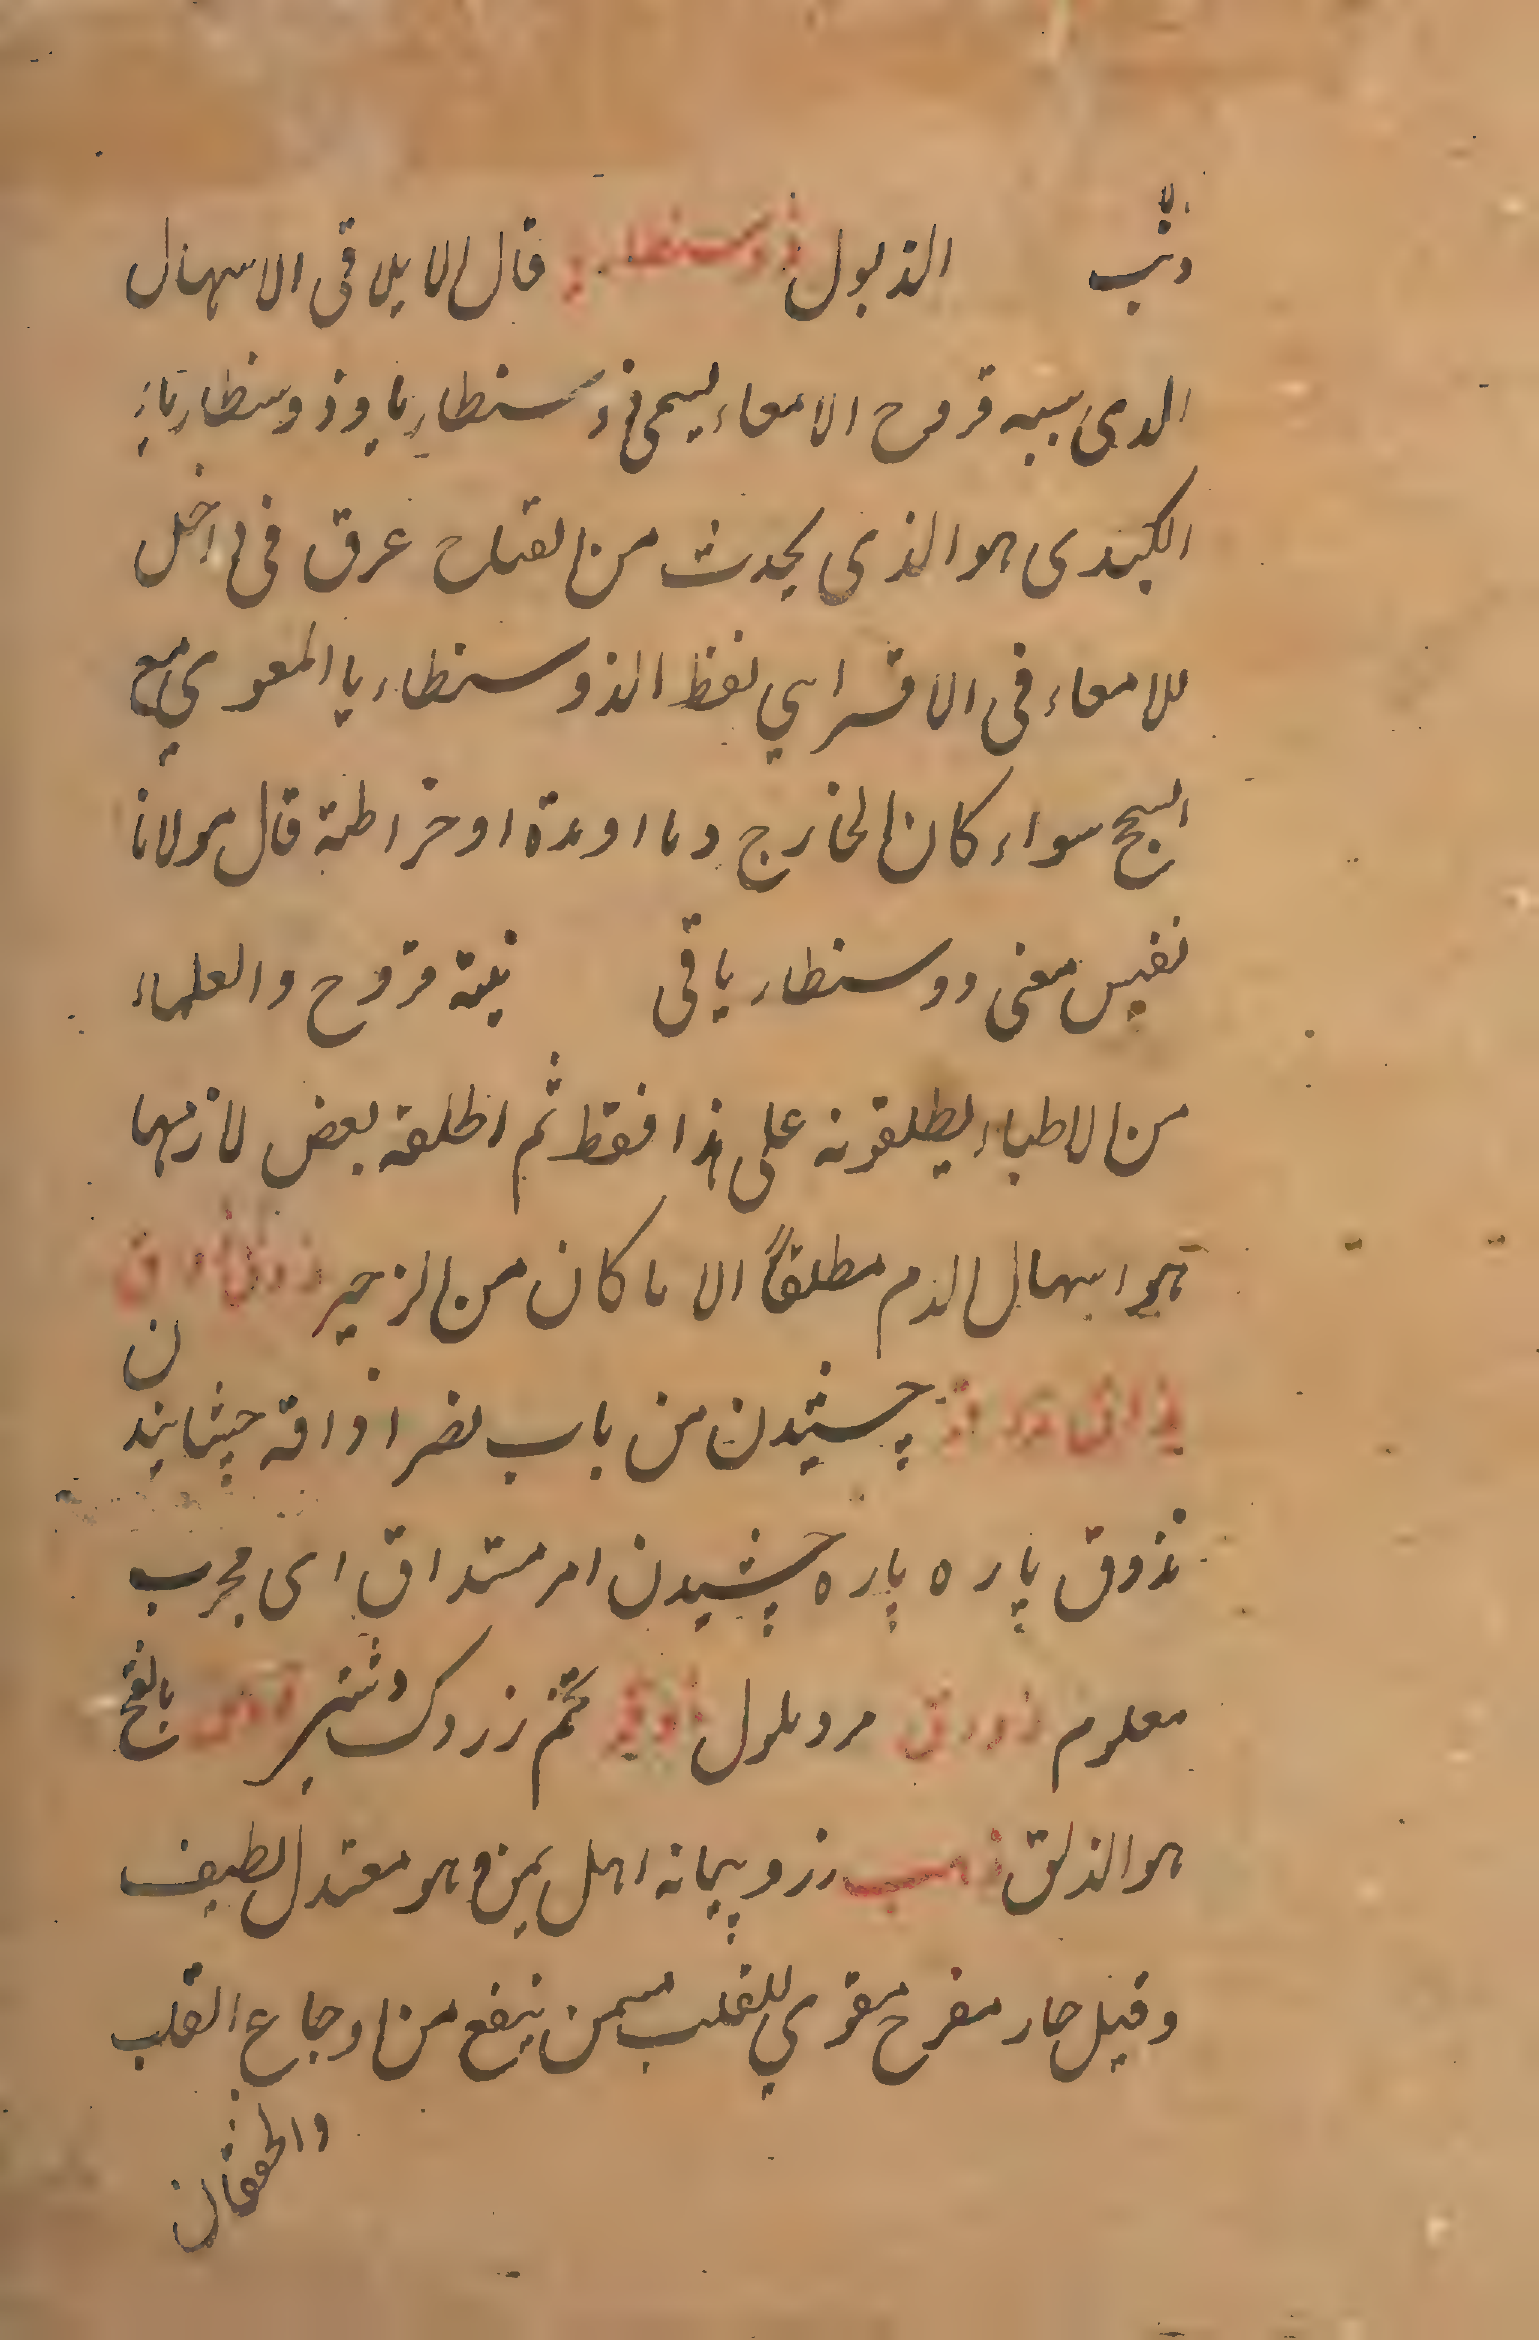 وثب الذبول ذوسنطاريا قال الايلاقى الاسهال
الدى سببه قروح الامعاء يسمى ذوسنطاريا وذوسنطاريا
الكبدى هو الذى يحدث من لفتاح عرق فى داخل
للامعاء فى الاقسرايي لفظ الذوسنطاريا المعوي مع
السحج سواء كان الخارج دما او مدة او خراطة قال مولانا
نفيس معنى دوسنطاريا قى نية قروح والعلماء
من الاطباء يطلقونه على هذا فقط ثم اطلقه بعض لازمها
هو اسهال الدم مطلقاً الا ما كان من الزحير
چشيدن من باب نصر اذاقه چشانيدن
تذوق پاره پاره چشيدن امر مستداق اى مجرب
معلوم مرد ملول تخم زردك دشتى بالفتح
هو الذلق ذهب زر و پيمانه اهل يمن و هو معتدل لطيف
وقيل حار مفرح مقوي للقلب مسمن ينفع من اوجاع القلب
والخفقان